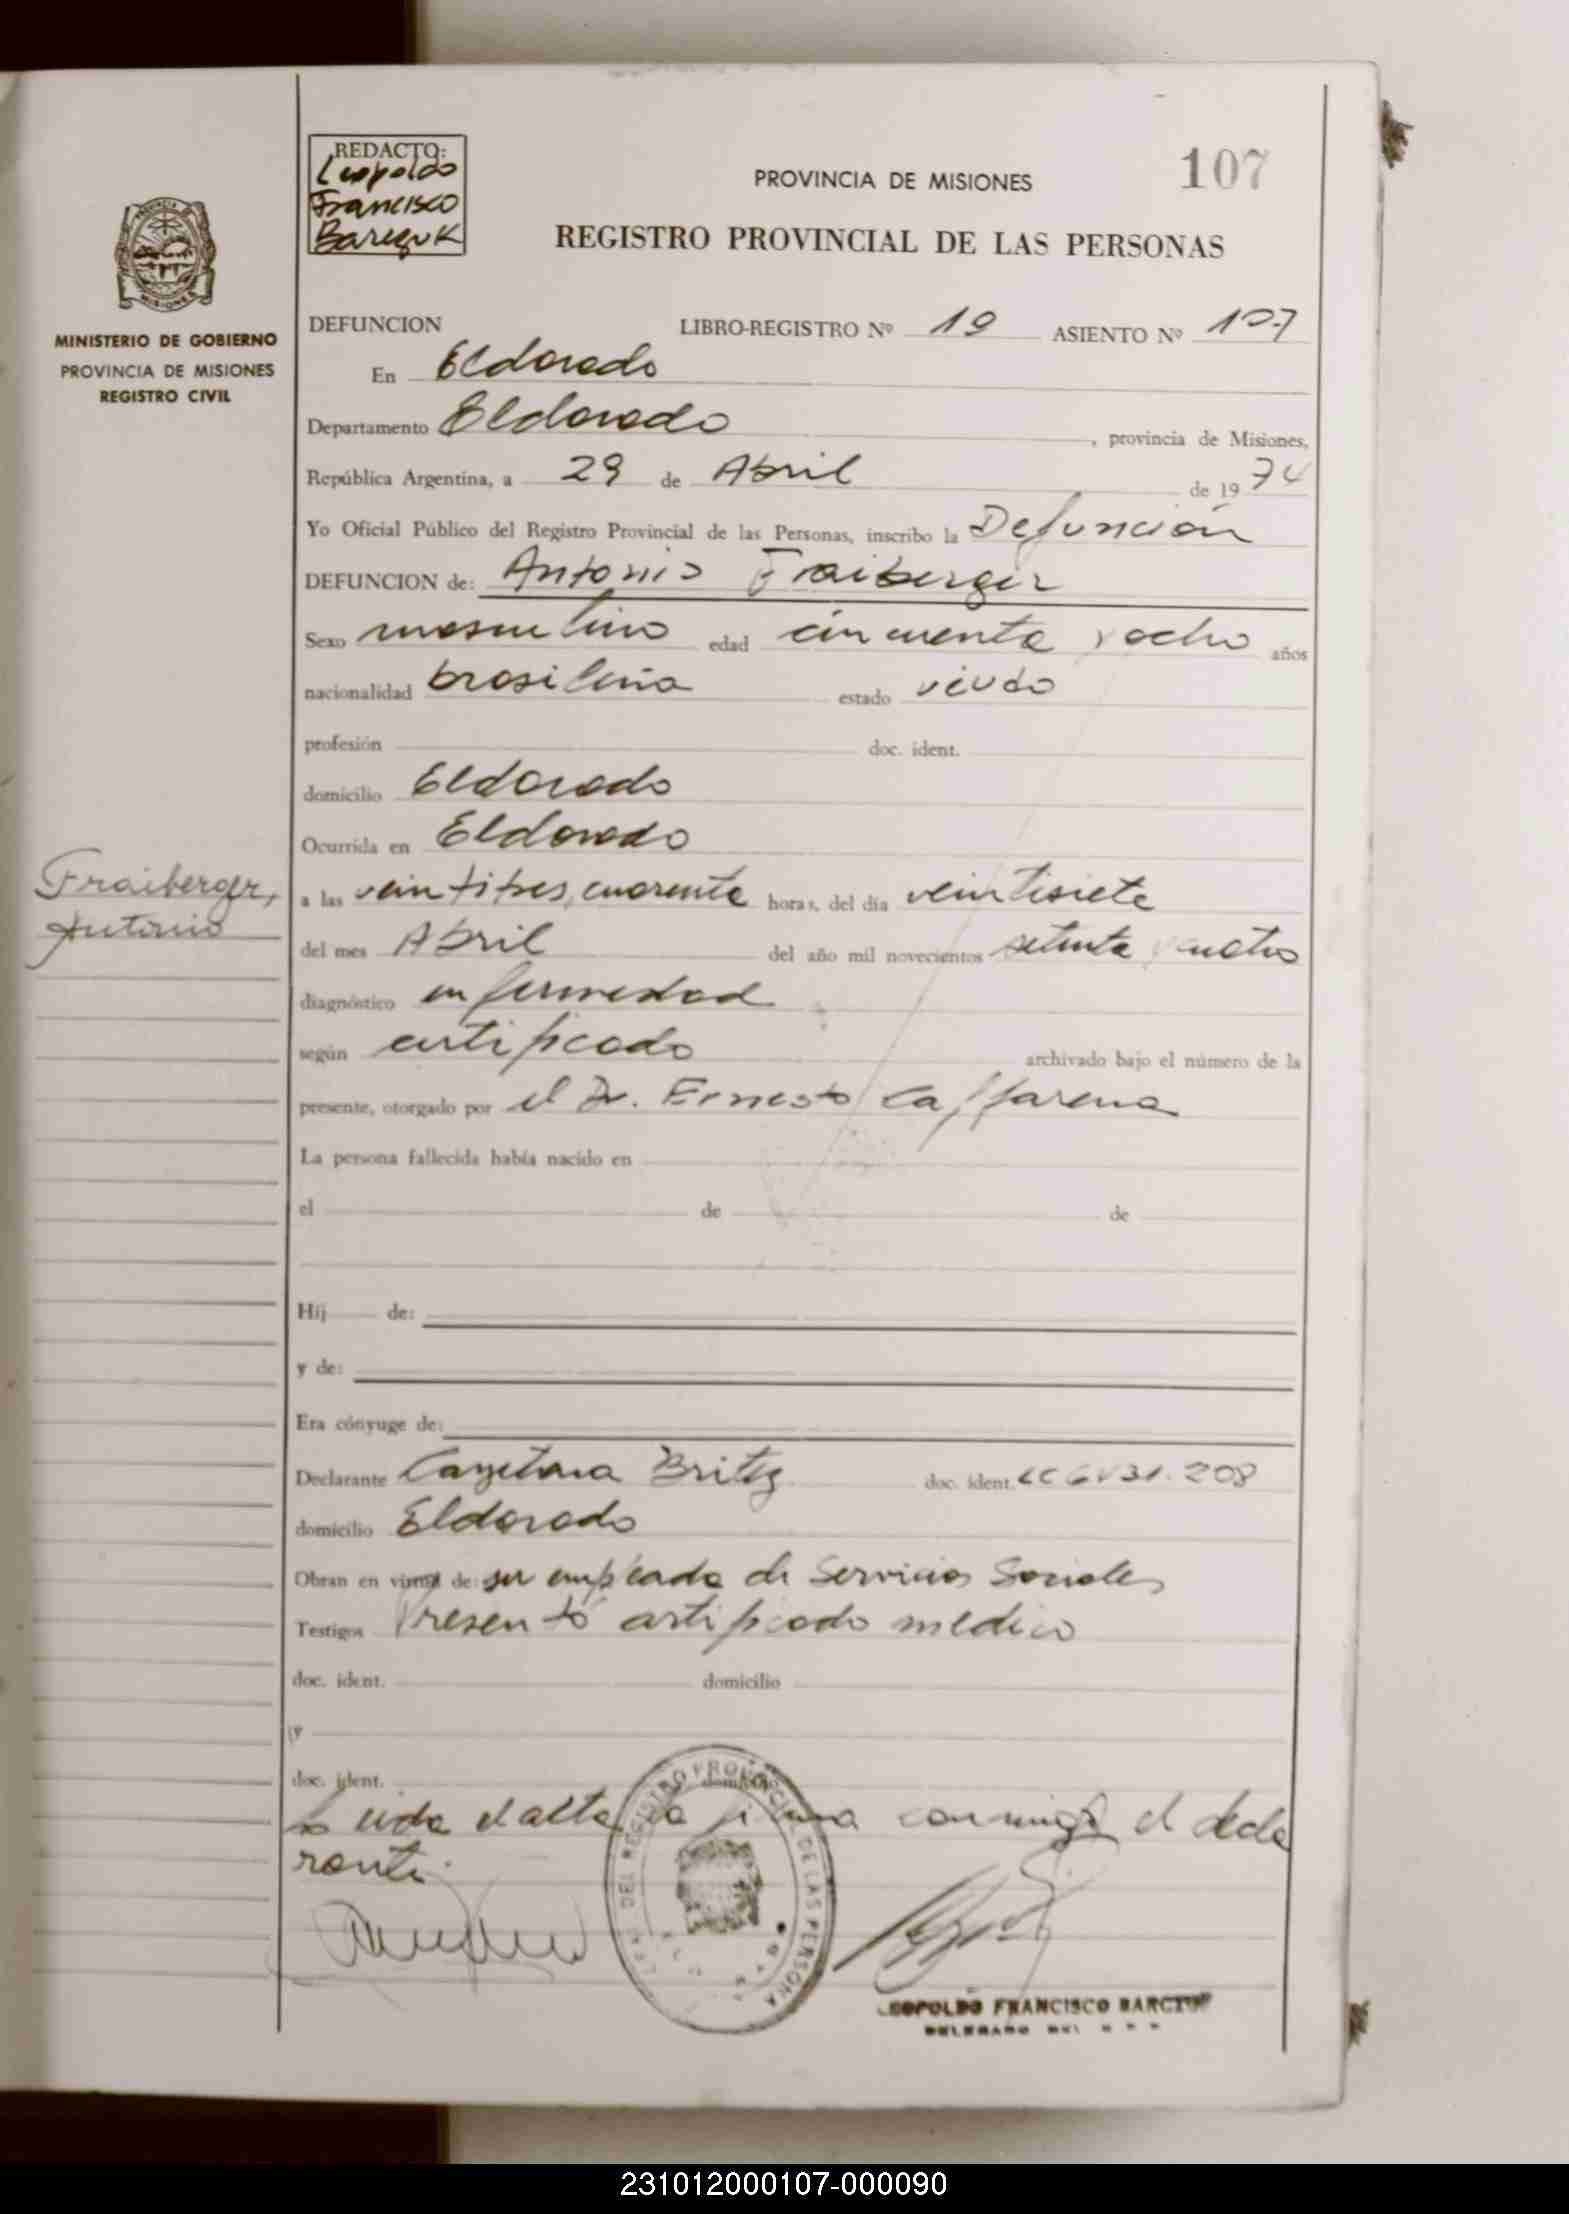 107
REDACTO:
Leopoldo
Francisco
PROVINCIA DE MISIONES
REGISTRO PROVINCIAL DE LAS PERSONAS
MINISTERIO DE GOBIERNO
PROVINCIA DE MISIONES
REGISTRO CIVIL
DEFUNCION LIBRO-REGISTRO Nº 19 ASIENTO Nº 107
En Eldorado
Departamento Eldorado, provincia de Misiones,
República Argentina, a 29 de Abril de 1974
Yo Oficial Público del Registro Provincial de las Personas, inscribo la Defunción
DEFUNCION de: Antonio Fraiberger
Sexo masculino edad cincuenta y ocho años
nacionalidad brasileña estado viudo
profesión doc. ident.
domicilio Eldorado
Ocurrida en Eldorado
Fraiberger,
Antonio
a las veintitres, cuarenta horas, del día veintisiete
del mes Abril del año mil novecientos setenta y cuatro
diagnóstico enfermedad
según certificado archivado bajo el número de la
presente, otorgado por el Dr. Ernesto Caffarena
La persona fallecida había nacido en
el de de
Hij de:
y de:
Era cónyuge de:
Declarante Cayetana Britez doc. ident.
domicilio Eldorado
Obran en virtud de: ser empleada de Servicios Sociales
Testigos Presentó certificado medico
doc. ident. domicilio
y
doc. ident. domicilio
Leida el acta la firma conmigo el decla
rante.
DEL REGISTRO PROVINCIAL DE LAS PERSONAS
LEOPOLDO FRANCISCO
231012000107-000090